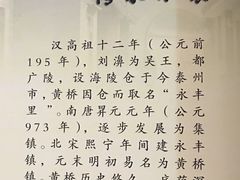 汉高祖十二年(公元前
195年),刘濞为吴王,都
广陵,设海陵仓于今泰州
市,黄桥因仓而取名“永丰
里”。南唐昇元元年(公元
973年),逐步发展为集
镇。北宋熙宁年间建永丰
镇,元末明初易名为黄桥
镇。黄桥历史悠久